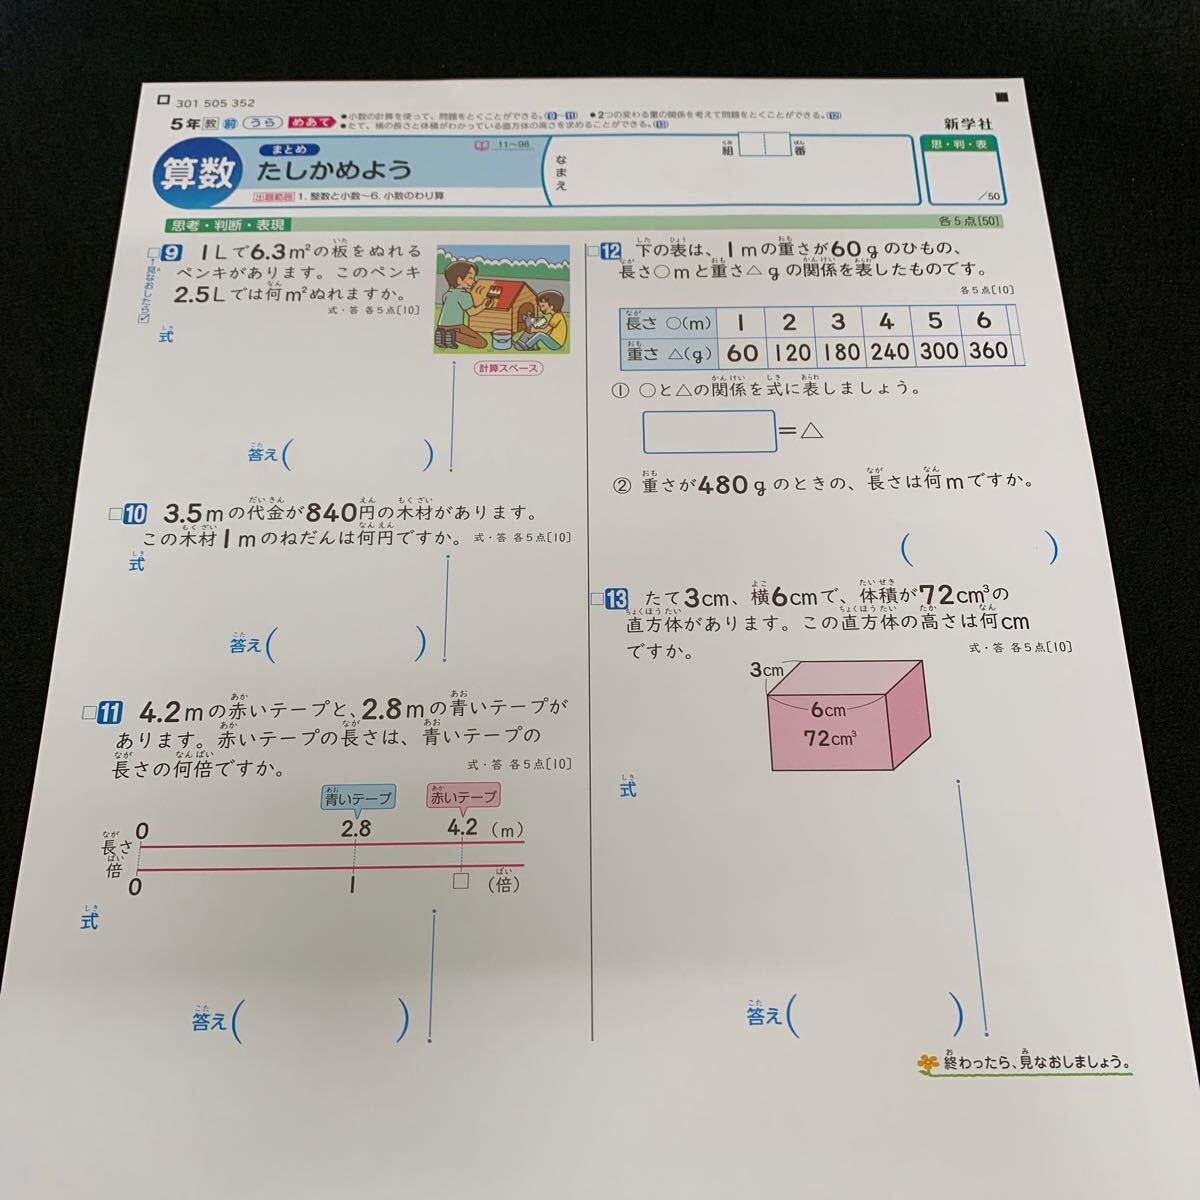 301 505 352
5年 教 前 うら めあて ●小数の計算を使って、問題をとくことができる。(9~11) ●2つの変わる量の関係を考えて問題をとくことができる。(12)
●たて、横の長さと体積がわかっている直方体の高さを求めることができる。(13)
新学社
算数
まとめ
たしかめよう
11~98
出題範囲 1. 整数と小数~6. 小数のわり算
なまえ
組 番
思・判・表
/50
思考・判断・表現
各5点[50]
↑見なおしたら☑
9 1Lで6.3m²の板をぬれる
ペンキがあります。このペンキ
2.5Lでは何m²ぬれますか。
式・答 各5点[10]
式
計算スペース
答え( )
10 3.5mの代金が840円の木材があります。
この木材1mのねだんは何円ですか。 式・答 各5点[10]
式
答え( )
11 4.2mの赤いテープと、2.8mの青いテープが
あります。赤いテープの長さは、青いテープの
長さの何倍ですか。
式・答 各5点[10]
青いテープ 赤いテープ
0 2.8 4.2 (m)
長さ
倍
0 1 □ (倍)
式
答え( )
12 下の表は、1mの重さが60gのひもの、
長さ○mと重さ△gの関係を表したものです。
各5点[10]
長さ ○(m) 1 2 3 4 5 6
重さ △(g) 60 120 180 240 300 360
① ○と△の関係を式に表しましょう。
=△
② 重さが480gのときの、長さは何mですか。
( )
13 たて3cm、横6cmで、体積が72cm³の
直方体があります。この直方体の高さは何cm
ですか。
式・答 各5点[10]
3cm
6cm
72cm³
式
答え( )
終わったら、見なおしましょう。